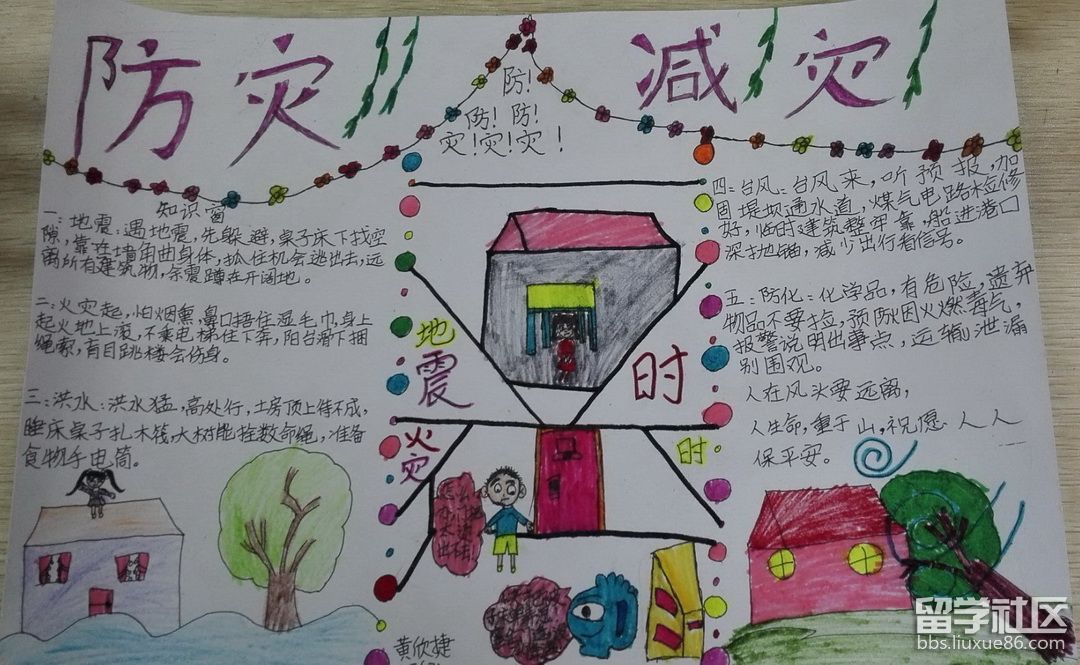 防灾 减灾
防!
防! 防!
灾!灾!灾!
知识窗
一:地震:遇地震,先躲避,桌子床下找空
隙,靠在墙角曲身体,抓住机会逃出去,远
离所有建筑物,余震蹲在开阔地。
二:火灾起,怕烟熏,鼻口捂住湿毛巾,身上
起火地上滚,不乘电梯往下奔,阳台滑下捆
绳索,盲目跳楼会伤身。
三:洪水:洪水猛,高处行,土房顶上待不成,
睡床桌子扎木筏,大树能拴救命绳,准备
食物手电筒。
地震
时
火灾
时
怎么
黄欣捷
四:台风:台风来,听预报,加
固堤坝通水道,煤气电路检修
好,临时建筑整牢靠,船进港口
深抛锚,减少出行看信号。
五:防化:化学品,有危险,遗弃
物品不要捡,预防因火燃毒气,
报警说明出事点,运输泄漏
别围观。
人在风头要远离,
人生命,重于山,祝愿人人
保平安。
留学社区
bbs.liuxue86.com